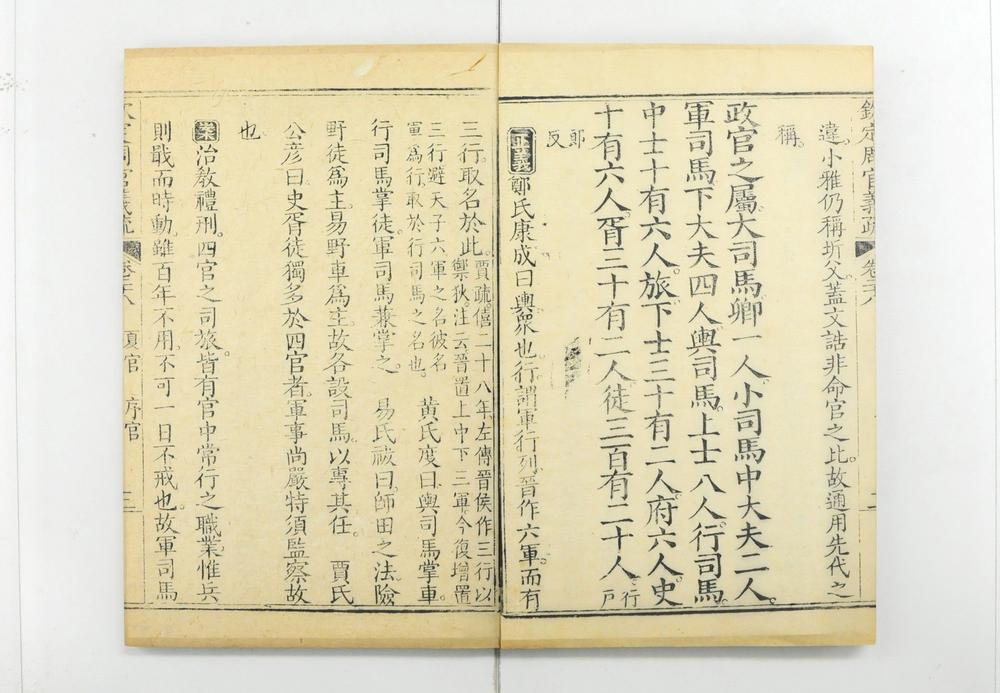 違小雅仍稱圻父蓋文誥非命官之比故通用先代之
稱
政官之屬大司馬卿一人小司馬中大夫二人
軍司馬下大夫四人輿司馬上士八人行司馬
中士十有六人旅下士三十有二人府六人史
十有六人胥三十有二人徒三百有二十人行戶
郞反
正義鄭氏康成曰輿衆也行謂軍行列晉作六軍而有
三行取名於此賈疏僖二十八年左傳晉侯作三行以
禦狄注云晉置上中下三軍今復增置
三行避天子六軍之名彼名
軍爲行取於行司馬之名也黃氏度曰輿司馬掌車
行司馬掌徒軍司馬兼掌之 易氏祓曰師田之法險
野徒爲主易野車爲主故各設司馬以專其任 賈氏
公彦曰史胥徒獨多於四官者軍事尚嚴特須監察故
也
案治敎禮刑四官之司旅皆有官中常行之職業惟兵
則戢而時動雖百年不用不可一日不戒也故軍司馬
欽定周官義疏 卷二十八 夏官 序官 三